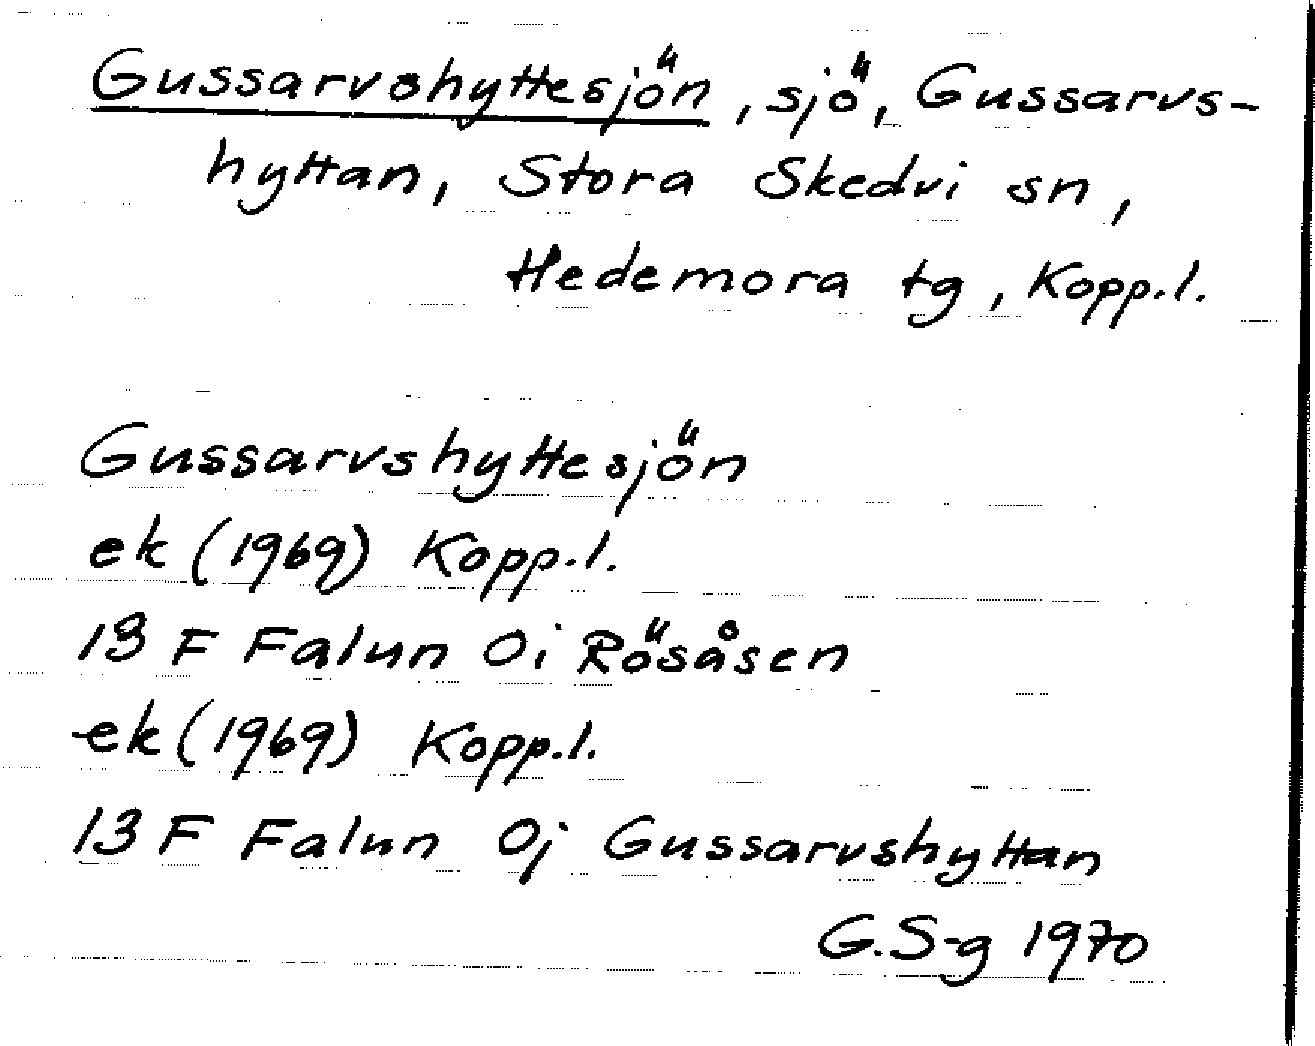 Gussarvshyttesjön, sjö, Gussarvs-
hyttan, Stora Skedvi sn,
Hedemora tg, Kopp.l.
Gussarvshyttesjön
ek (1969) Kopp.l.
13 F Falun 0i Rösåsen
ek (1969) Kopp.l.
13 F Falun 0j Gussarvshyttan
G.S-g 1970